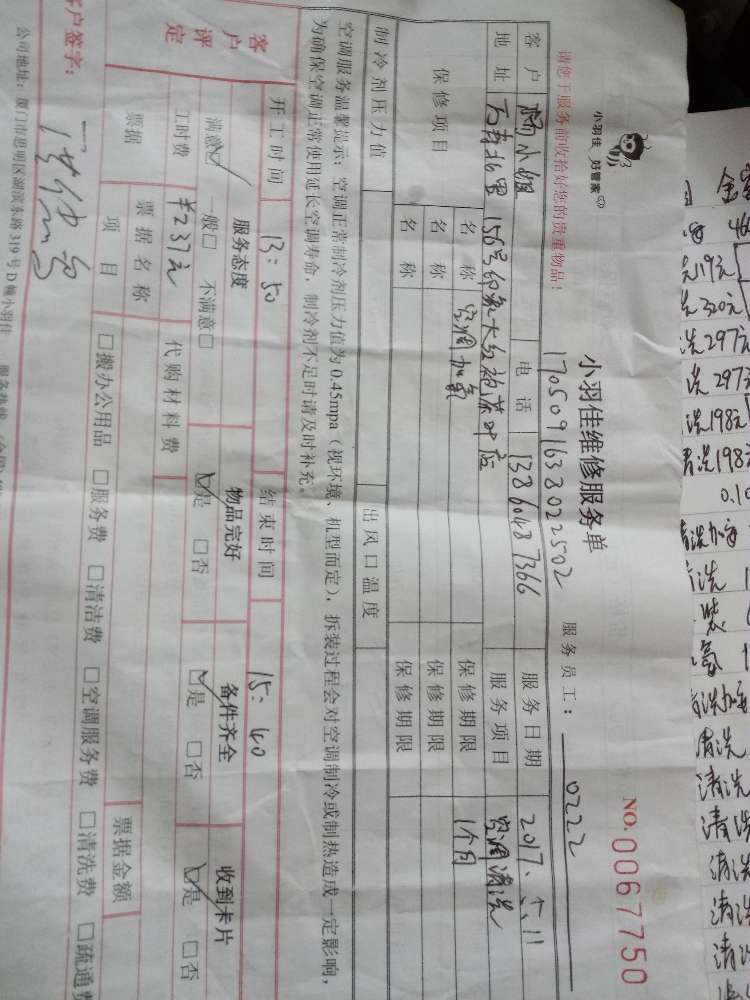 小羽佳 好管家
小羽佳维修服务单
NO.0067750
1705091638022502
服务员工： 0222
请您于服务前收拾好您的贵重物品！
客户 杨小姐 电话 13860487366 服务日期 2017、5、11
地址 万寿北里156号印象大红袍茶叶店 服务项目 空调清洗
保修项目 名称 空调加氟 保修期限 1个月
名称 保修期限
名称 保修期限
制冷剂压力值 出风口温度
空调服务温馨提示：空调正常制冷剂压力值为0.45mpa（视环境、机型而定），拆装过程会对空调制冷或制热造成一定影响，
为确保空调正常使用延长空调寿命，制冷剂不足时请及时补充。
开工时间 13：50 结束时间 15：40
客户评定 服务态度 物品完好 备件齐全 收到卡片
满意☑ 一般□ 不满意□ ☑是 □否 ☑是 □否 ☑是 □否
工时费 ¥237元 代购材料费
票据 票据名称 票据金额
项目 □搬办公用品 □服务费 □清洁费 □空调服务费 □清洗费 □疏通费
客户签字：
公司地址：厦门市思明区湖滨东路319号D幢小羽佳
119元
320元
洗297元
洗297
洗198元
清洗198
0.10
清洗加
清洗
装
氟
清洗加
清洗
清洗
清洗
清洗
清洗
清洗